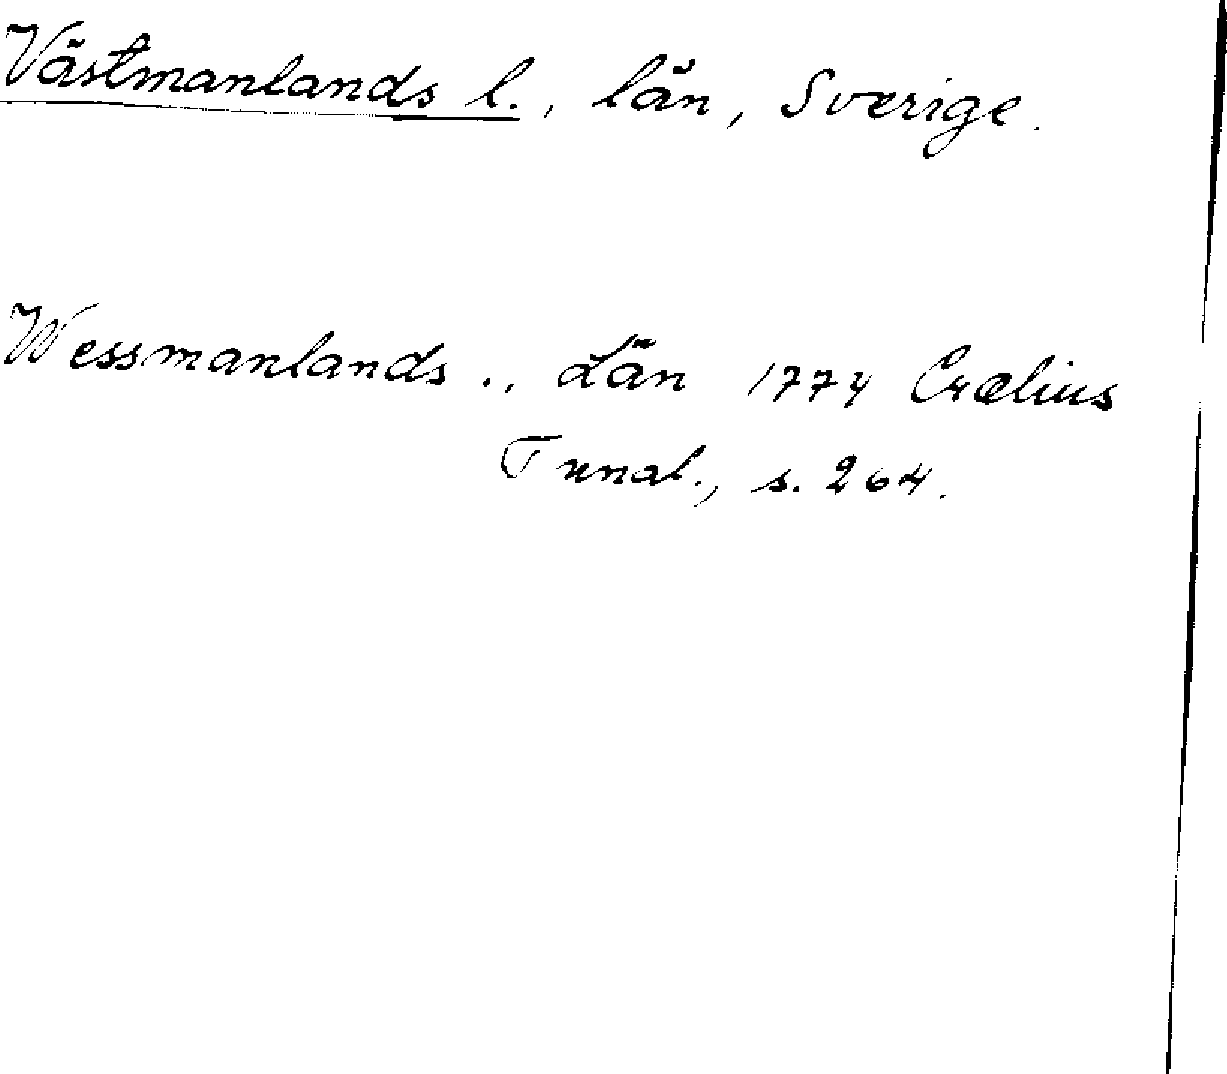 Västmanlands l., län, Sverige.
Wessmanlands., Län 1774 Crælius
Tunal., s. 264.